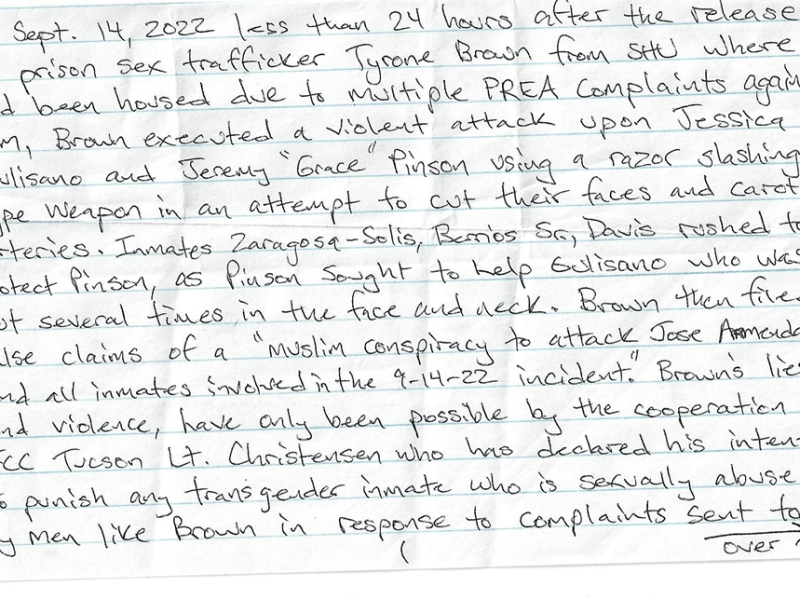 Sept. 14, 2022 less than 24 hours after the release
prison sex trafficker Tyrone Brown from SHU where
d been housed due to multiple PREA Complaints again
m, Brown executed a violent attack upon Jessica
ulisano and Jeremy "Grace" Pinson using a razor slashing
ype weapon in an attempt to cut their faces and carot
rteries. Inmates Zaragosa-Solis, Berrios Sr, Davis rushed to
otect Pinson, as Pinson sought to help Gulisano who was
ut several times in the face and neck. Brown then file
lse claims of a "muslim conspiracy to attack Jose
nd all inmates involved in the 9-14-22 incident." Brown's lies
nd violence, have only been possible by the cooperation
FCC Tucson Lt. Christensen who has declared his inten
o punish any transgender inmate who is sexually abuse
y men like Brown in response to complaints sent to
over